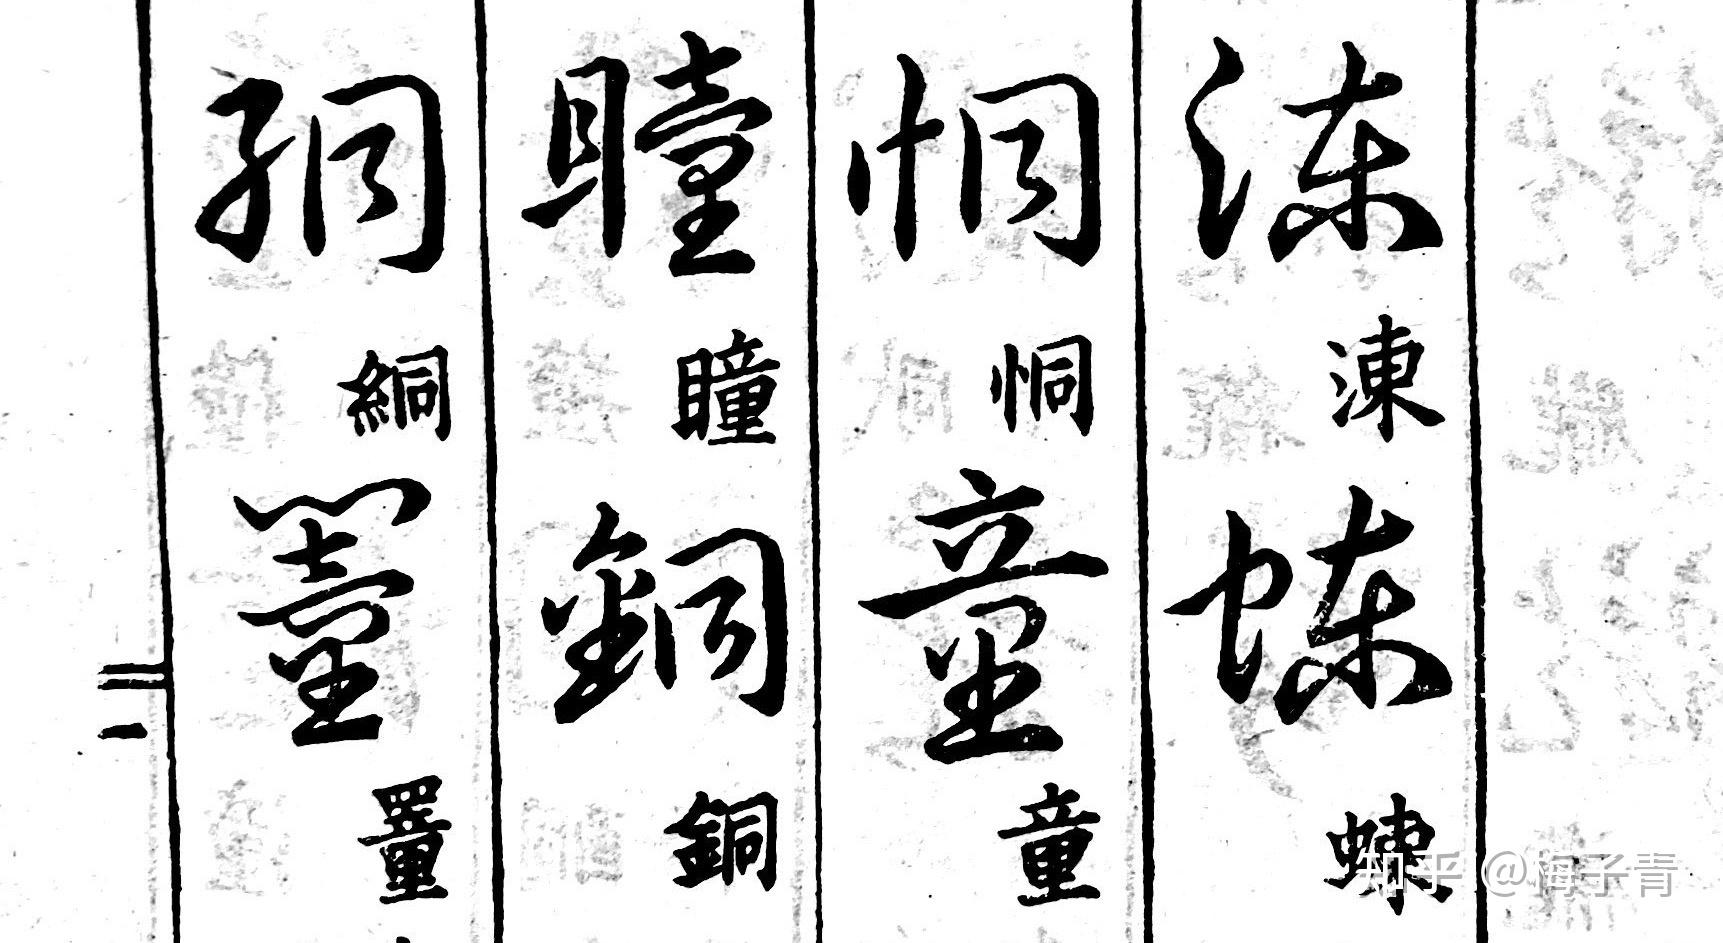 涷
涷
蝀
蝀
恫
恫
童
童
瞳
瞳
銅
銅
絧
絧
罿
罿
知乎 @梅子青